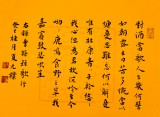 對酒當歌人生幾何譬
如朝露去日苦多慨當以
慷憂思難忘何以解憂
唯有杜康青青子衿悠悠
我心但為君故沉吟至今
呦呦鹿鳴食野之苹我有
嘉賓鼓瑟吹笙
右錄曹操短歌行